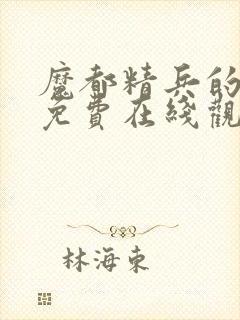 魔都精兵的
免費在綫觀
林海東